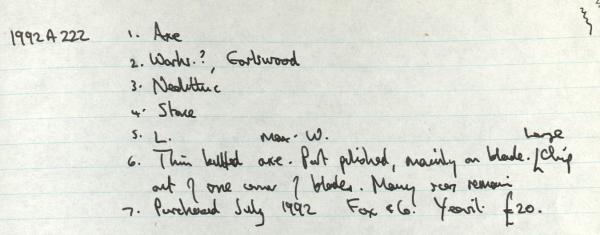 1992A222 1. Axe
2. Warks.?, Earlswood
3. Neolithic
4. Stone
5. L. max. W.
6. Thin butted axe. Part polished, mainly on blade. [Large Chip
out of one corner of blade. Many scars remain
7. Purchased July 1992 Fox & Co. Yeovil. £20.